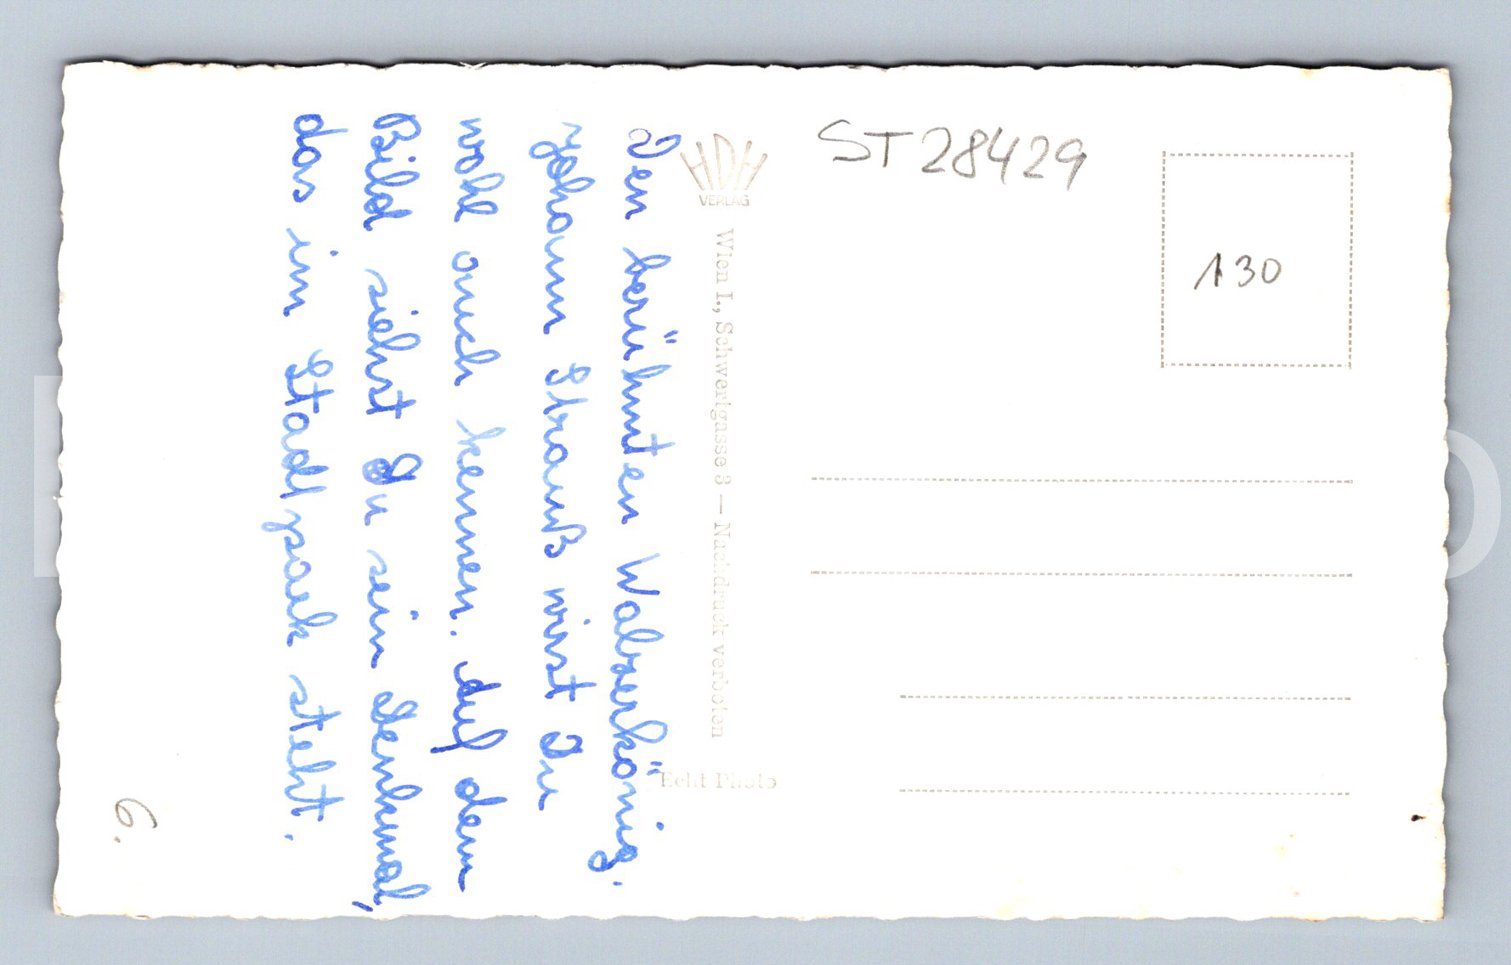 Den berühmten Walzerkönig.
Johann Strauß wirst Du
wohl auch kennen. Auf dem
Bild siehst Du sein Denkmal,
das im Stadtpark steht.
6.
HDH
VERLAG
Wien I., Schwertgasse 3 — Nachdruck verboten
Echt Photo
ST28429
130